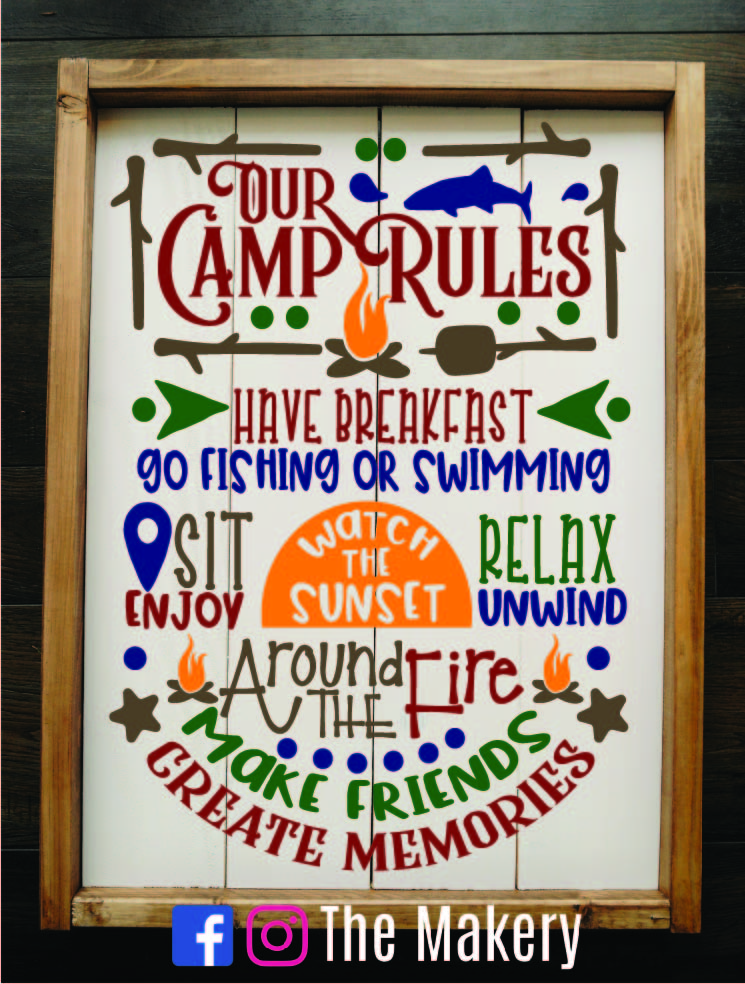 OUR
CAMP RULES
HAVE BREAKFAST
go FISHING OR SWIMMING
SIT
WATCH
THE
SUNSET
RELAX
ENJOY
UNWIND
Around
THE Fire
MAKE FRIENDS
CREATE MEMORIES
The Makery